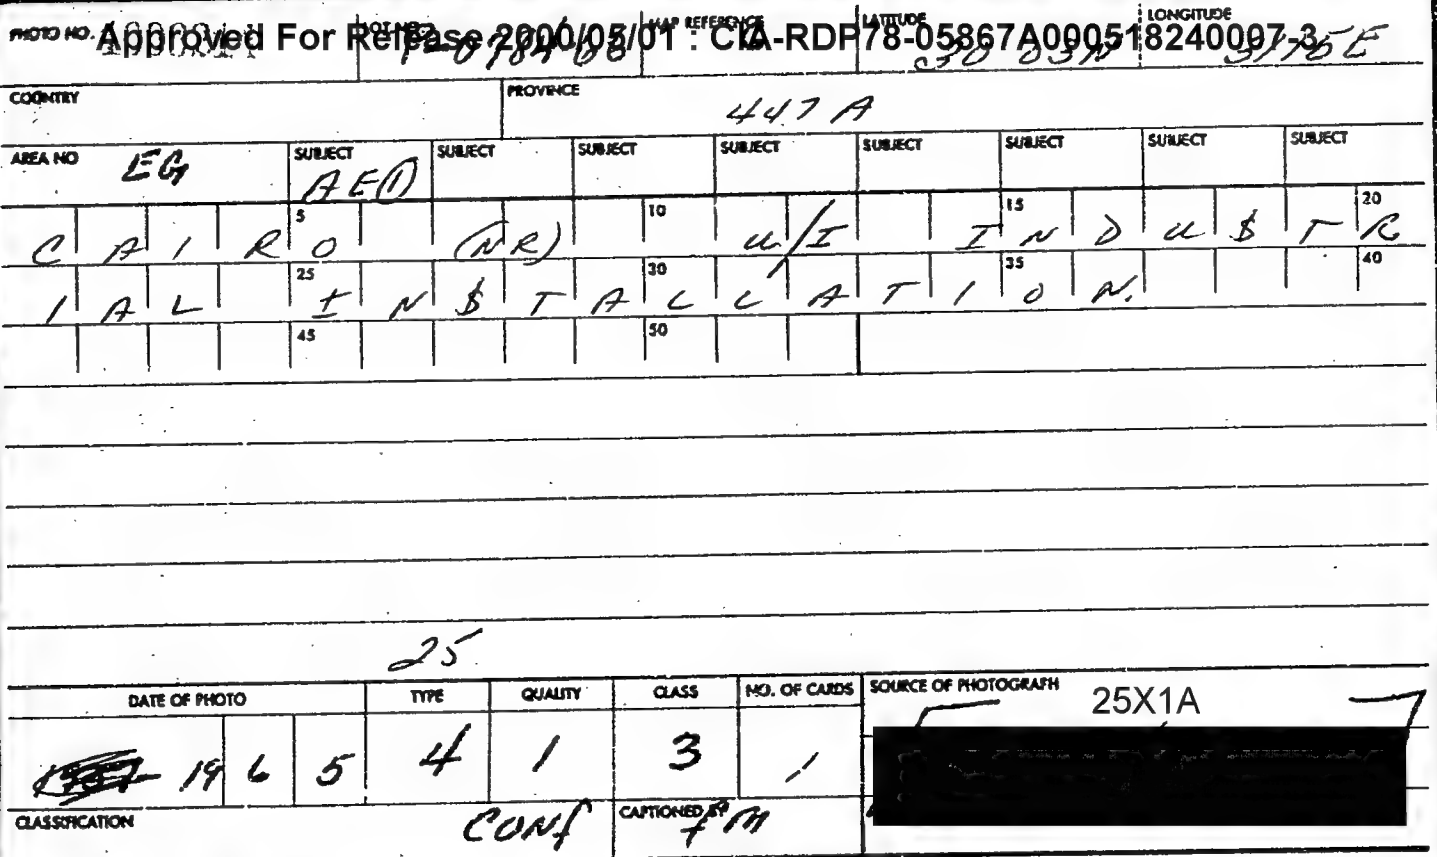 PHOTO NO. Approved For Release 2000/05/01 : CIA-RDP78-05867A000518240007-3
MAP REFERENCE LATITUDE LONGITUDE
30 03N 3115E
COUNTRY PROVINCE 447A
AREA NO EG SUBJECT AE① SUBJECT SUBJECT SUBJECT SUBJECT SUBJECT SUBJECT SUBJECT
5 10 15 20
CAIRO (NR) U/I INDU$TR
25 30 35 40
IAL IN$TALLATION.
45 50
25
DATE OF PHOTO TYPE QUALITY CLASS NO. OF CARDS SOURCE OF PHOTOGRAPH 25X1A
1965 4 1 3 1
CLASSIFICATION CONf CAPTIONED BY fM